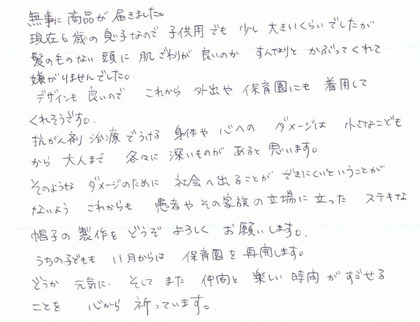 無事に商品が届きました。
現在6歳の息子なので子供用でも少し大きいくらいでしたが
髪のものない頭に肌ざわりが良いのかすんなりとかぶってくれて
嫌がりませんでした。
デザインも良いのでこれから外出や保育園にも着用して
くれそうです。
抗がん剤治療でうける身体や心へのダメージは小さなこども
から大人まで各々に深いものがあると思います。
そのようなダメージのために社会へ出ることができにくいということが
ないようこれからも患者やその家族の立場に立ったステキな
帽子の製作をどうぞよろしくお願いします。
うちの子どもも11月からは保育園を再開します。
どうか元気に、そしてまた仲間と楽しい時間がすごせる
ことを心から祈っています。